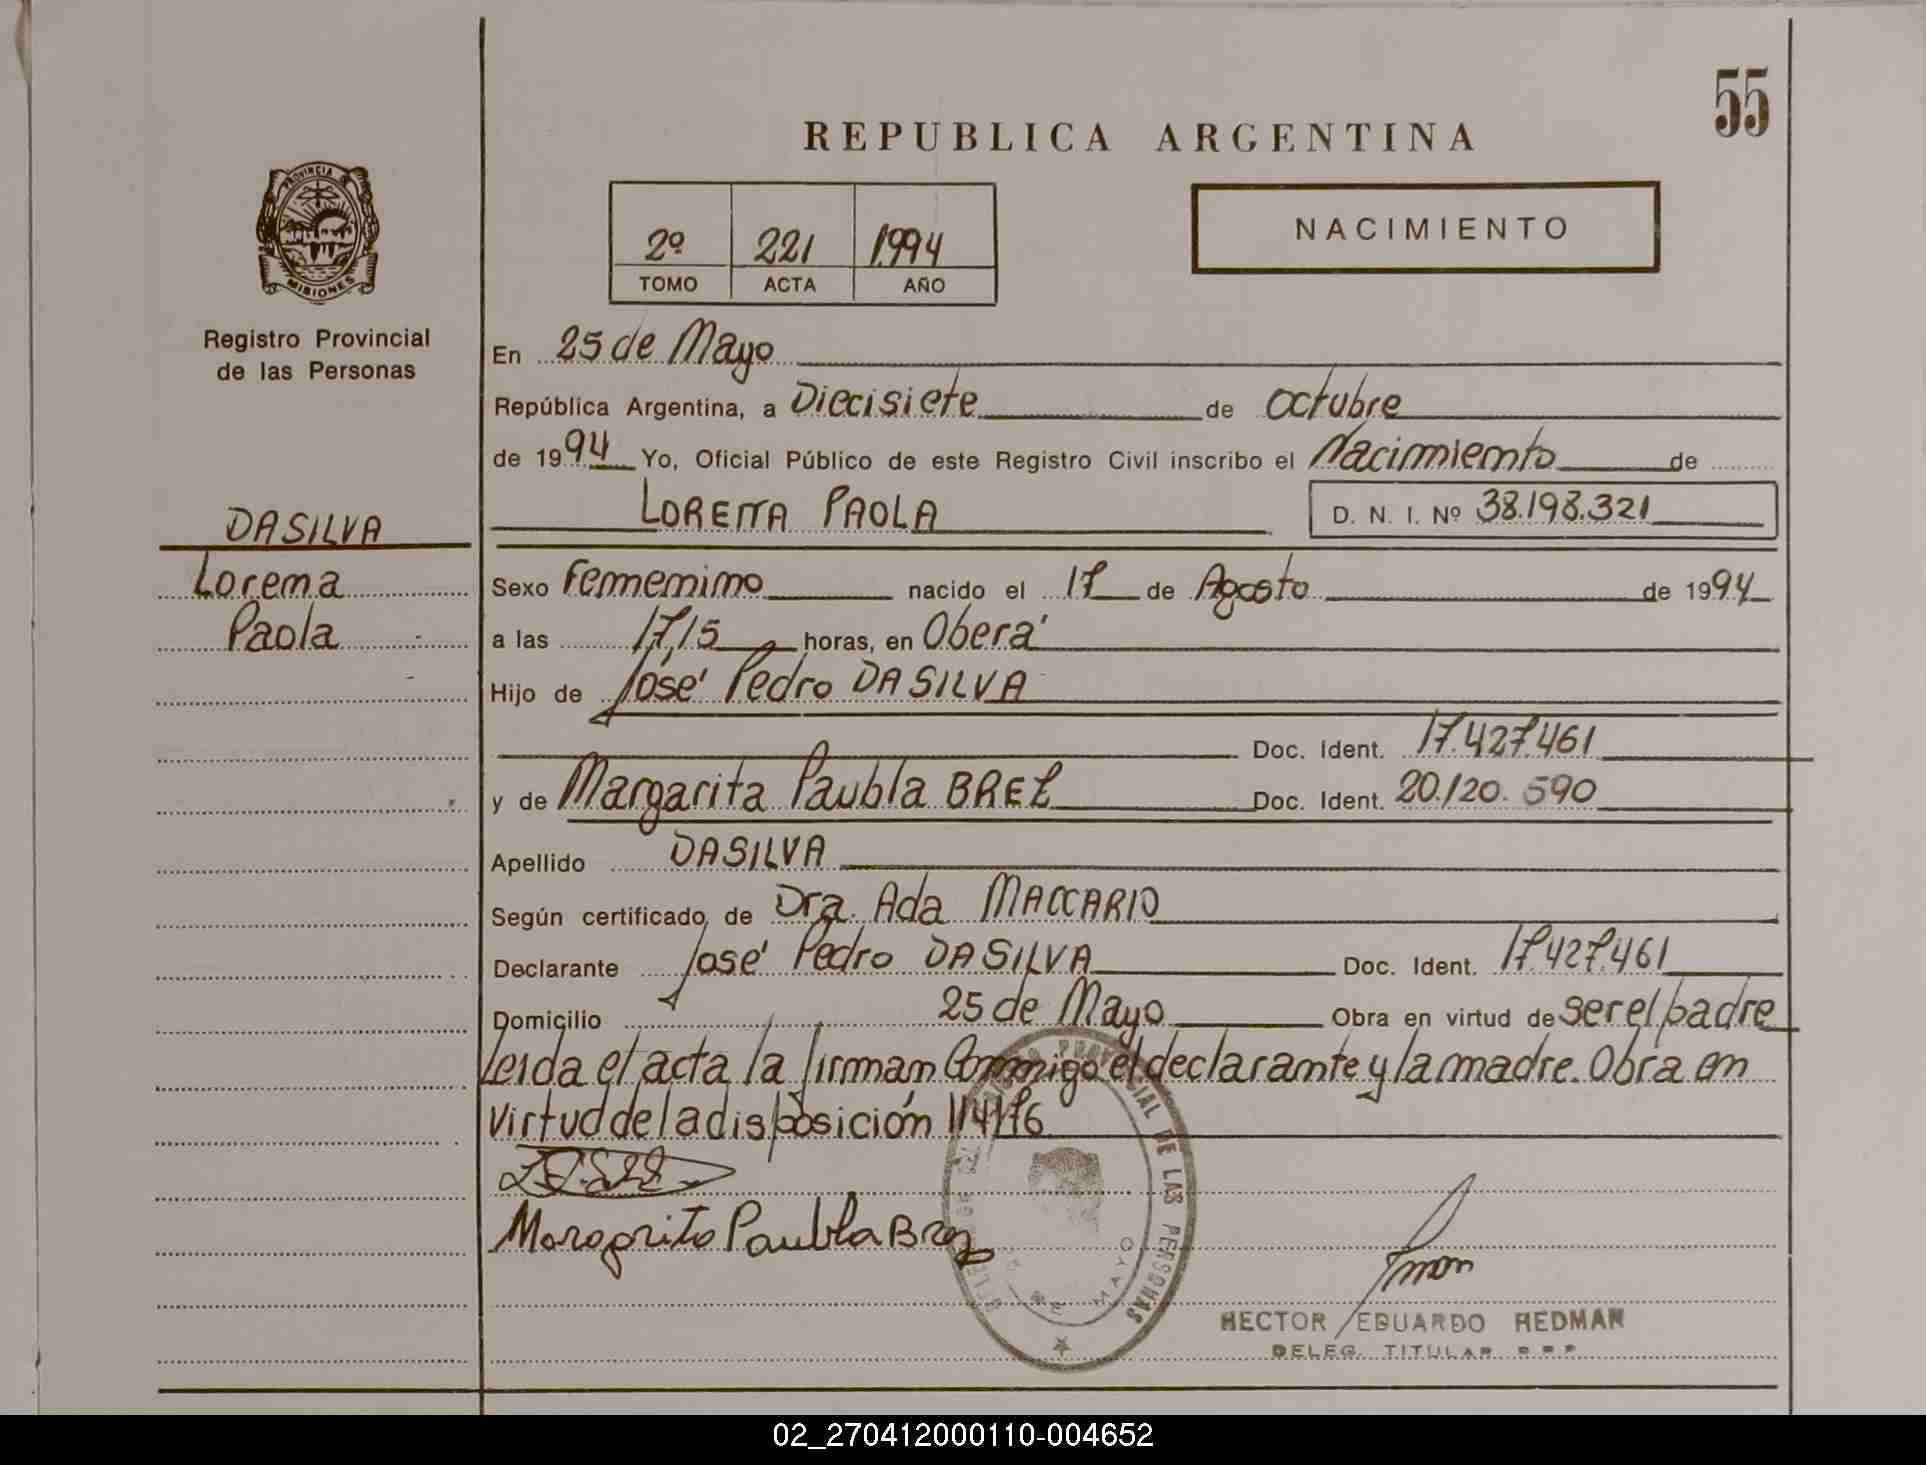 55
REPUBLICA ARGENTINA
PROVINCIA DE
MISIONES
Registro Provincial
de las Personas
2º 221 1994
TOMO ACTA AÑO
NACIMIENTO
En 25 de Mayo
República Argentina, a Diecisiete de octubre
de 1994 Yo, Oficial Público de este Registro Civil inscribo el Nacimiento de
LORENA PAOLA D. N. I. Nº 38.198.321
DASILVA
Lorena
Paola
Sexo Femenino nacido el 17 de Agosto de 1994
a las 17,15 horas, en Oberá
Hijo de José Pedro DASILVA
Doc. Ident. 17.427.461
y de Margarita Paubla BREZ Doc. Ident. 20.120.590
Apellido DASILVA
Según certificado de Dra. Ada MACCARIO
Declarante José Pedro DASILVA Doc. Ident. 17.427.461
Domicilio 25 de Mayo Obra en virtud de ser el padre
Leida el acta la firman Conmigo el declarante y la madre. Obra en
virtud de la disposición 114/76
Margarita Paubla Brez
PROVINCIAL DE LAS PERSONAS
DE MAYO
HECTOR EDUARDO REDMAN
DELEG. TITULAR R.P.P.
02_270412000110-004652